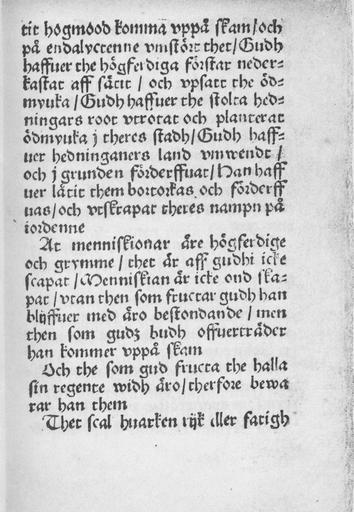 tit hogmood komma vppå skam/och
på endalyctenne vmstört thet/Gudh
haffuer the högferdiga förstar neder-
kastat aff sätit / och vpsatt the öd-
myuka / Gudh haffuer the stolta hed-
ningars root vtrotat och planterat
ödmyuka j theres stadh/Gudh haff-
uer hedninganers land vmwendt /
och j grunden förderffuat/Han haff
uer lätit them bortorkas och förderff
uas/och vtskrapat theres nampn på
iordenne
At menniskionar äre högferdige
och grymme / thet är aff gudhi icke
scapat / Menniskian är icke ond ska-
pat / vtan then som fructar gudh han
blyffuer med äro bestondande / men
then som gudz budh offuerträder
han kommer vppå skam
Och the som gud fructa the halla
sin regente widh äro/therfore bewa
rar han them
Thet scal huarken rijk eller fatigh